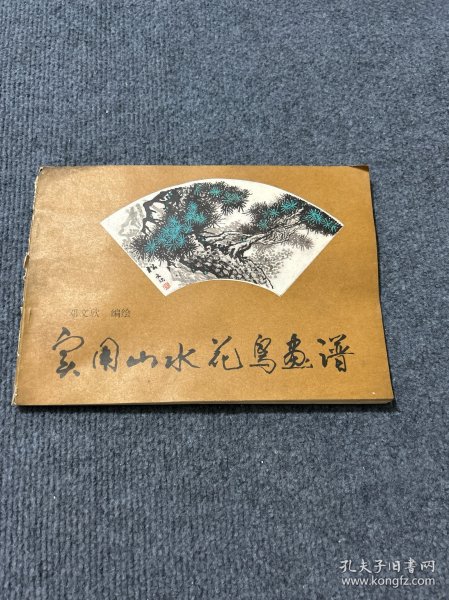 邓文欣 编绘
实用山水花鸟画谱
孔夫子旧书网
www.kongfz.com